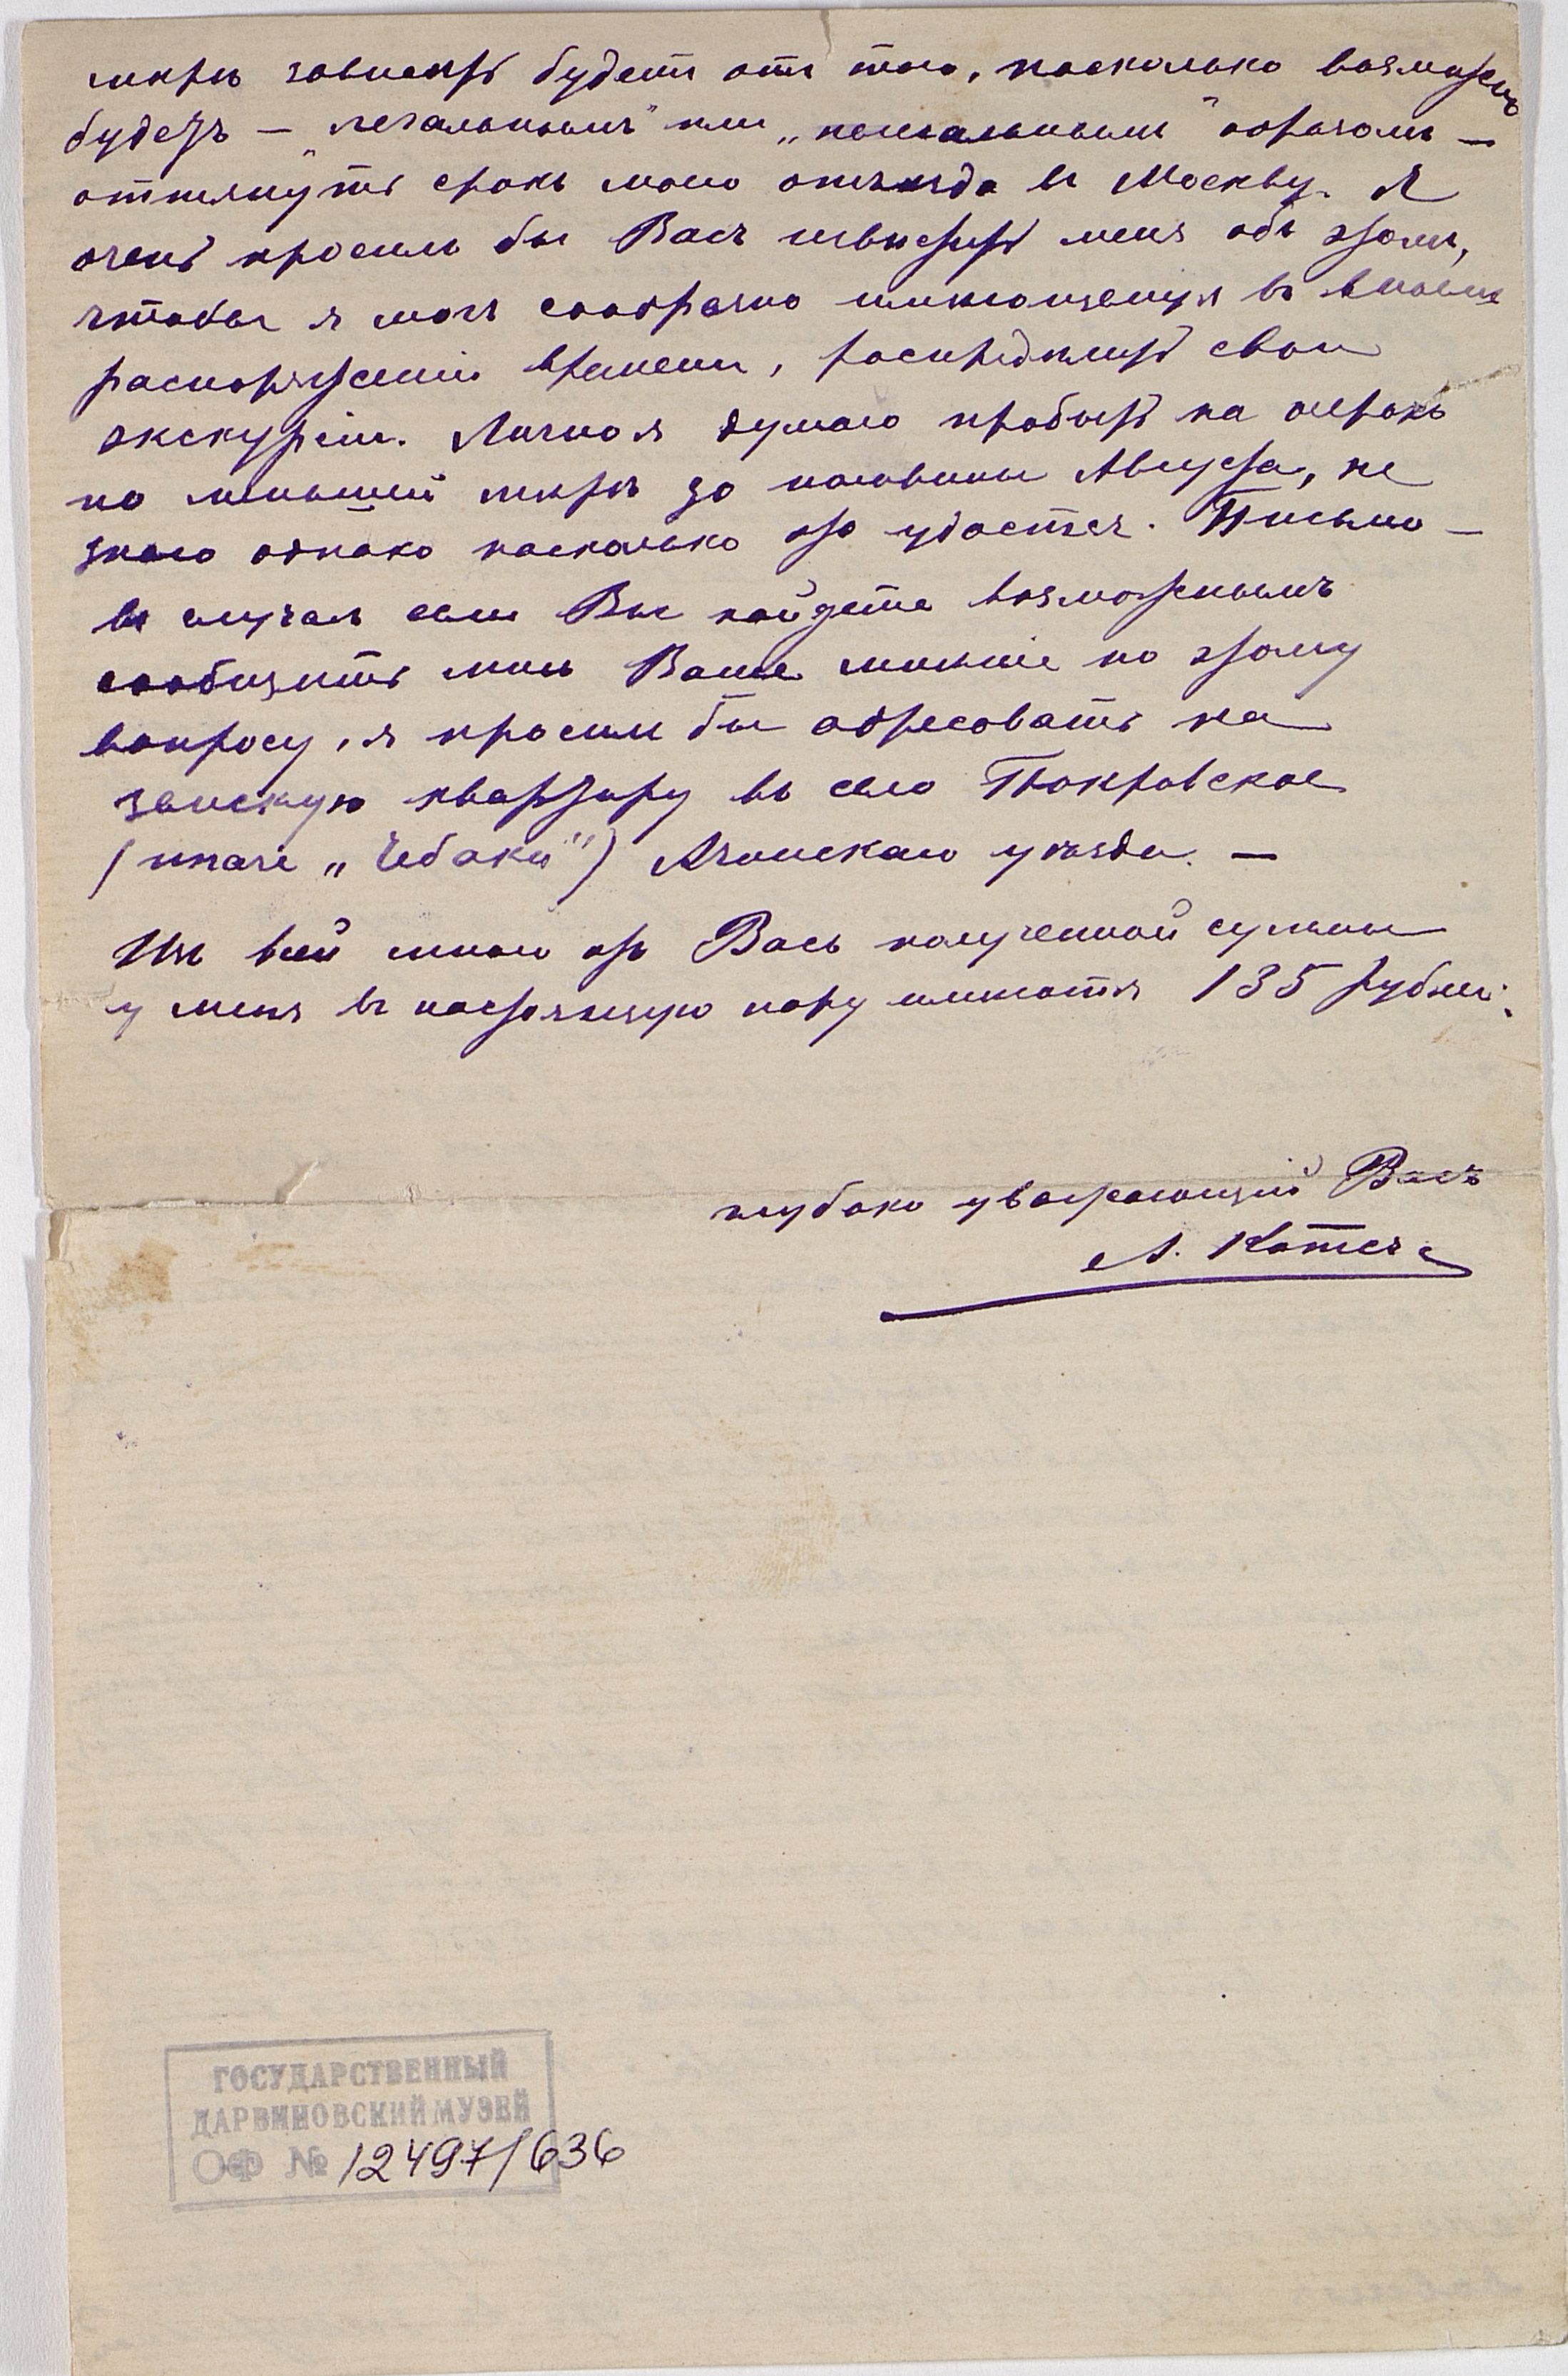 мѣрѣ зависѣть будетъ отъ того, насколько возможно
будетъ — „легальнымъ" или „нелегальнымъ" образомъ —
оттянуть срокъ моего отъѣзда въ Москву. Я
очень просилъ бы Васъ извѣстить меня объ этомъ,
чтобы я могъ сообразно имѣющемуся въ моемъ
распоряженіи времени, распредѣлить свои
экскурсіи. Лично я думаю пробыть на озерахъ
по меньшей мѣрѣ до половины Августа, не
знаю однако насколько это удастся. Письмо —
въ случаѣ если Вы найдете возможнымъ
сообщить мнѣ Ваше мнѣніе по этому
вопросу, я просилъ бы адресовать на
земскую квартиру въ село Покровское
(иначе „Чебаки") Ачинскаго уѣзда. —
Изъ всей мною отъ Васъ полученной суммы
у меня въ настоящую пору имѣются 135 рублей.
глубоко уважающій Васъ
А. Котсъ
ГОСУДАРСТВЕННЫЙ
ДАРВИНОВСКИЙ МУЗЕЙ
ОФ № 12497/636